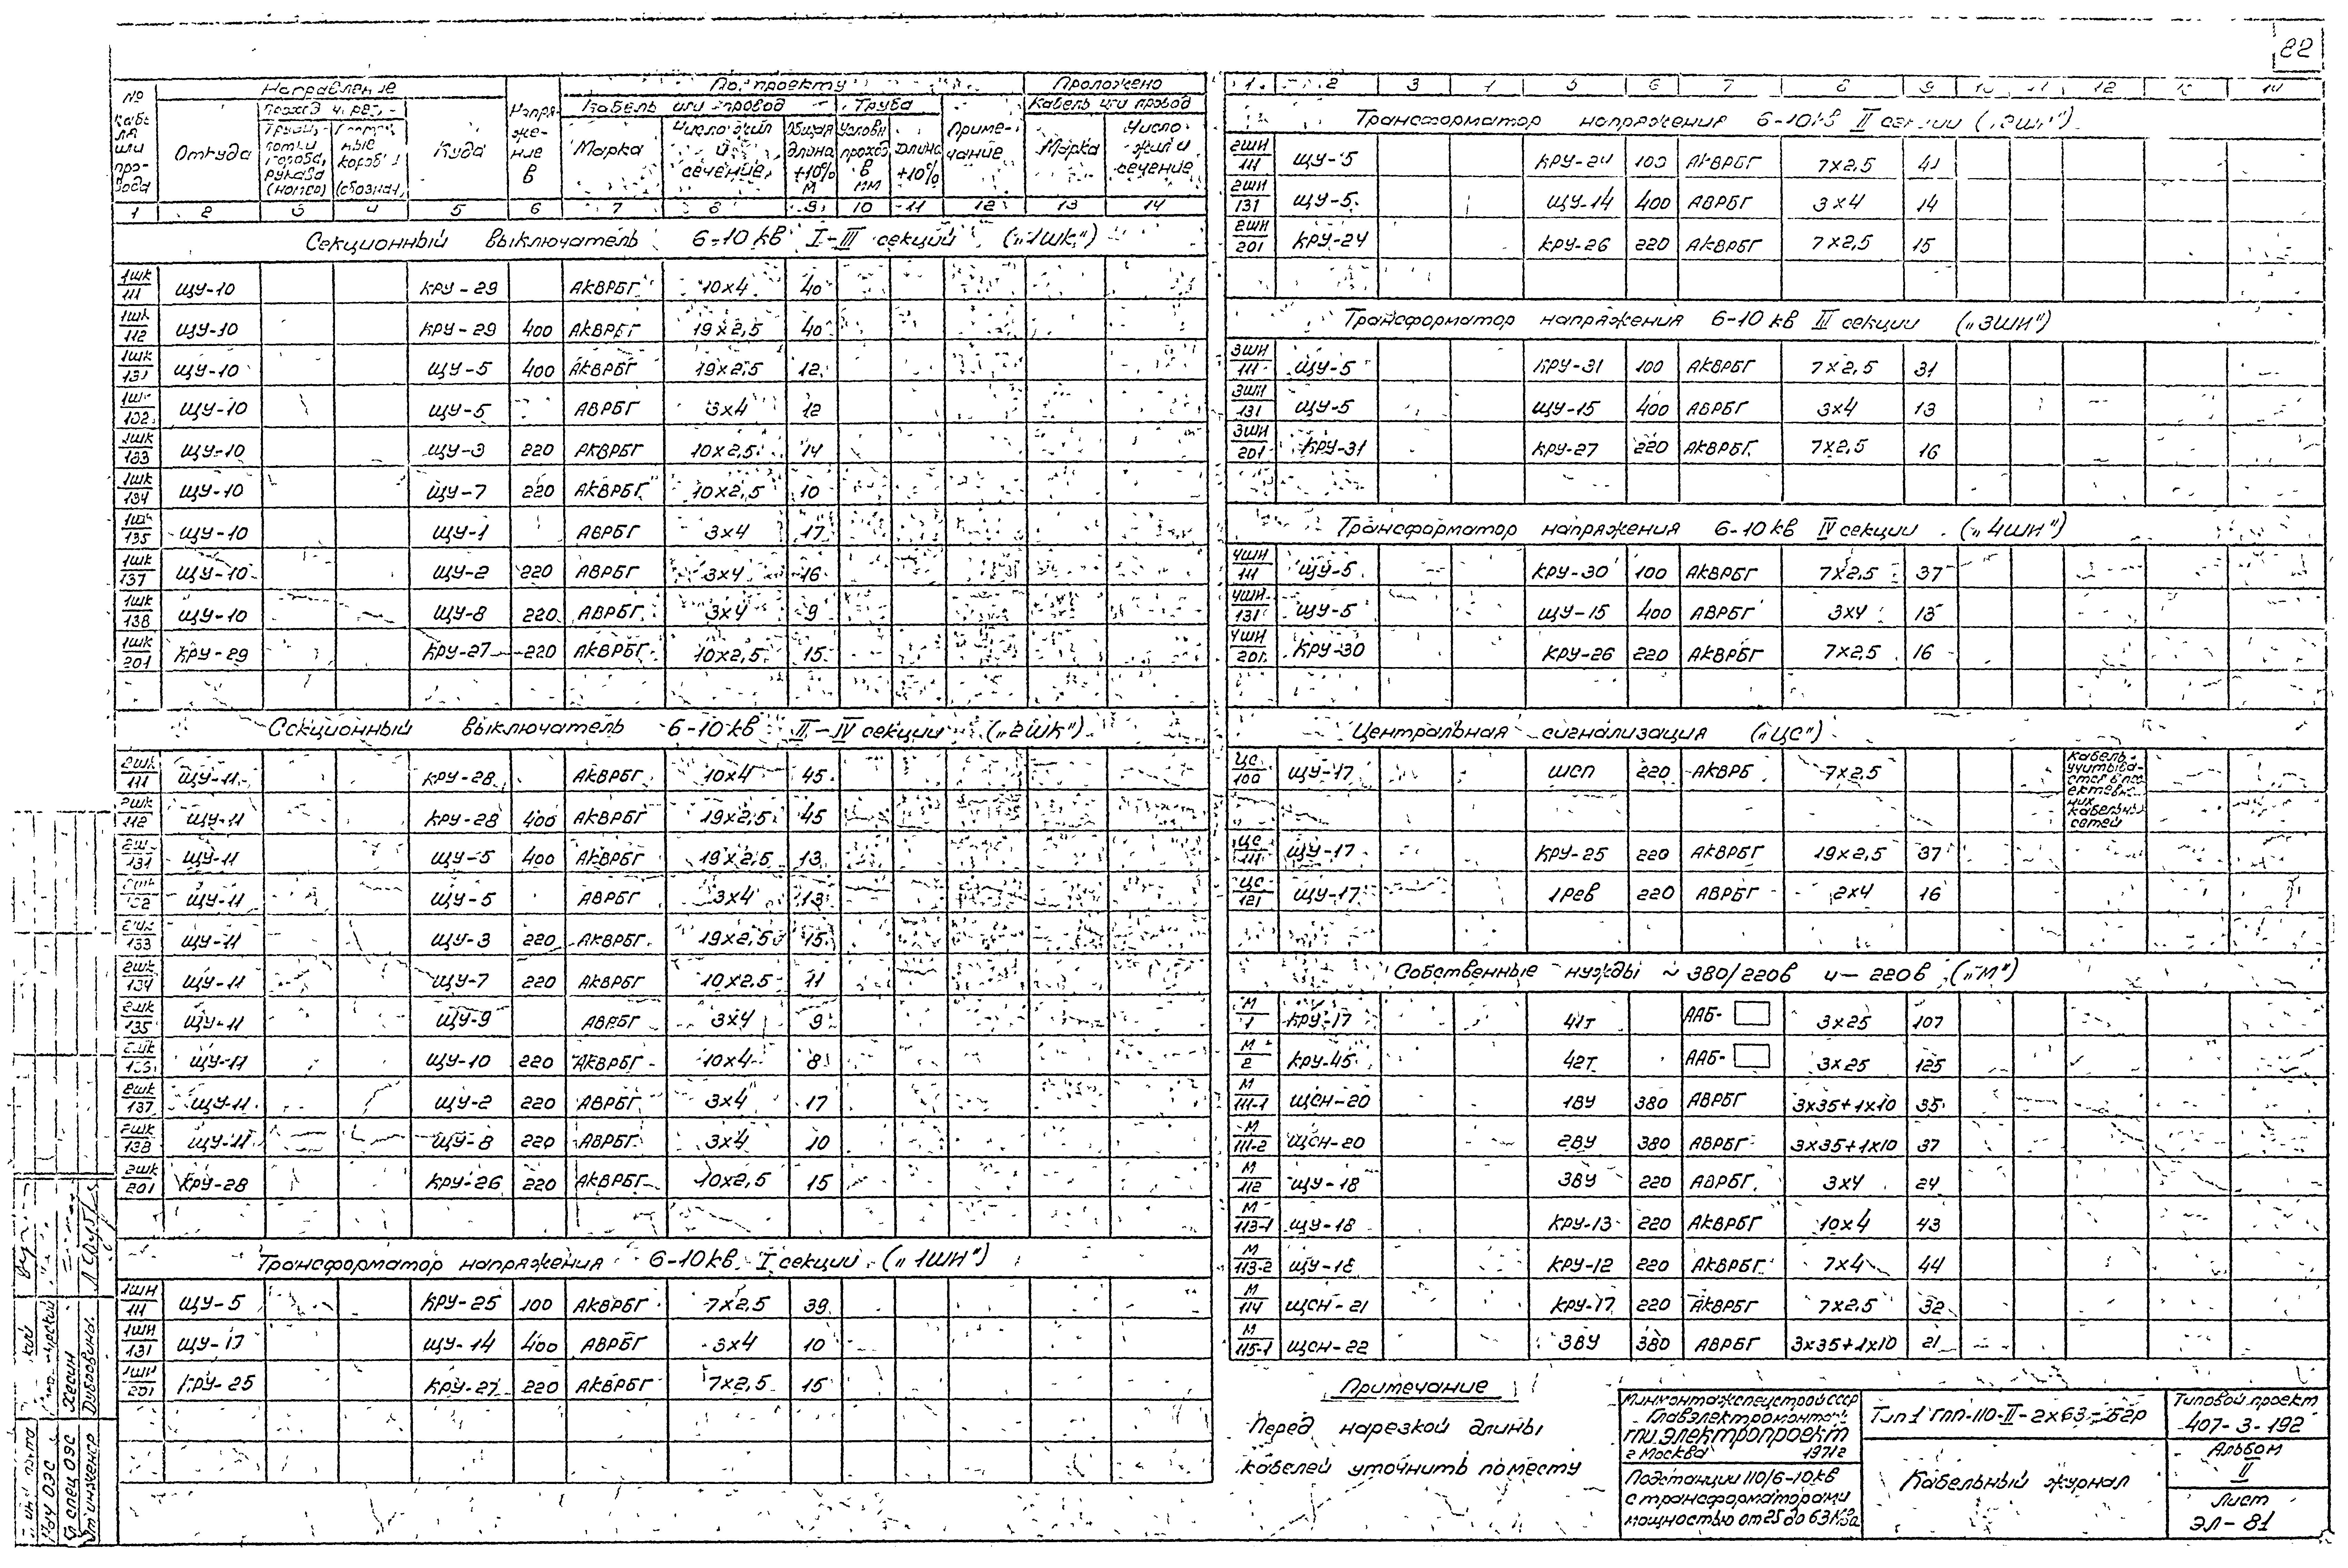 22
№ кабеля или провода
Направление
Напряжение в
По проекту
Проложено
Откуда
Куда
Кабель или провод
Труба
Примечание
Кабель или провод
Марка
Число жил и сечение
Общая длина +10% м
Условн. проход в мм
Длина +10%
Марка
Число жил и сечение
1 2 3 4 5 6 7 8 9 10 11 12 13 14
Секционный выключатель 6-10 кв I-III секций („1шк")
1шк/111 ЩУ-10 КРУ-29 АКВРБГ 10х4 40
1шк/112 ЩУ-10 КРУ-29 400 АКВРБГ 19х2,5 40
1шк/131 ЩУ-10 ЩУ-5 400 АКВРБГ 19х2,5 12
ЩУ-10 ЩУ-5 АВРБГ 3х4 12
ЩУ-10 ЩУ-3 220 АКВРБГ 10х2,5 14
1шк/134 ЩУ-10 ЩУ-7 220 АКВРБГ 10х2,5 10
135 ЩУ-10 ЩУ-1 АВРБГ 3х4 17
1шк/137 ЩУ-10 ЩУ-2 220 АВРБГ 3х4 16
1шк/138 ЩУ-10 ЩУ-8 220 АВРБГ 3х4 9
1шк/201 КРУ-29 КРУ-27 220 АКВРБГ 10х2,5 15
Секционный выключатель 6-10 кв II-IV секций („2шк")
2шк/111 ЩУ-11 КРУ-28 АКВРБГ 10х4 45
2шк/112 ЩУ-11 КРУ-28 400 АКВРБГ 19х2,5 45
131 ЩУ-11 ЩУ-5 400 АКВРБГ 19х2,5 13
ЩУ-11 ЩУ-5 АВРБГ 3х4 13
133 ЩУ-11 ЩУ-3 220 АКВРБГ 19х2,5 15
2шк/134 ЩУ-11 ЩУ-7 220 АКВРБГ 10х2,5 11
2шк/135 ЩУ-11 ЩУ-9 АВРБГ 3х4 9
ЩУ-11 ЩУ-10 220 АКВРБГ 10х4 8
2шк/137 ЩУ-11 ЩУ-2 220 АВРБГ 3х4 17
2шк/138 ЩУ-11 ЩУ-8 220 АВРБГ 3х4 10
2шк/201 КРУ-28 КРУ-26 220 АКВРБГ 10х2,5 15
Трансформатор напряжения 6-10 кв I секции („1ШИ")
1ШИ/111 ЩУ-5 КРУ-25 100 АКВРБГ 7х2,5 39
1ШИ/131 ЩУ-13 ЩУ-14 400 АВРБГ 3х4 10
1ШИ/201 КРУ-25 КРУ-27 220 АКВРБГ 7х2,5 15
1 2 3 4 5 6 7 8 9 10 11 12 13 14
Трансформатор напряжения 6-10 кв II секции („2ШИ")
2ШИ/111 ЩУ-5 КРУ-24 100 АКВРБГ 7х2,5 41
2ШИ/131 ЩУ-5 ЩУ-14 400 АВРБГ 3х4 14
2ШИ/201 КРУ-24 КРУ-26 220 АКВРБГ 7х2,5 15
Трансформатор напряжения 6-10 кв III секции („3ШИ")
3ШИ/111 ЩУ-5 КРУ-31 100 АКВРБГ 7х2,5 31
3ШИ/131 ЩУ-5 ЩУ-15 400 АВРБГ 3х4 13
3ШИ/201 КРУ-31 КРУ-27 220 АКВРБГ 7х2,5 16
Трансформатор напряжения 6-10 кв IV секции („4ШИ")
4ШИ/111 ЩУ-5 КРУ-30 100 АКВРБГ 7х2,5 37
4ШИ/131 ЩУ-5 ЩУ-15 400 АВРБГ 3х4 13
4ШИ/201 КРУ-30 КРУ-26 220 АКВРБГ 7х2,5 16
Центральная сигнализация („ЦС")
ЦС/100 ЩУ-17 ШСП 220 АКВРБ 7х2,5 Кабель учитывается в проекте внешних кабельных сетей
ЦС/111 ЩУ-17 КРУ-25 220 АКВРБГ 19х2,5 37
ЦС/121 ЩУ-17 1РЕВ 220 АВРБГ 2х4 16
Собственные нужды ~380/220в и – 220в („М")
М/1 КРУ-17 41т ААБ- 3х25 107
М/2 КРУ-45 42т ААБ- 3х25 125
М/111-1 ЩСН-20 1ВУ 380 АВРБГ 3х35+1х10 35
М/111-2 ЩСН-20 2ВУ 380 АВРБГ 3х35+1х10 37
М/112 ЩУ-18 3ВУ 220 АВРБГ 3х4 24
М/113-1 ЩУ-18 КРУ-13 220 АКВРБГ 10х4 43
М/113-2 ЩУ-18 КРУ-12 220 АКВРБГ 7х4 44
М/114 ЩСН-21 КРУ-17 220 АКВРБГ 7х2,5 32
М/115-1 ЩСН-22 3ВУ 380 АВРБГ 3х35+1х10 21
Примечание
Перед нарезкой длины
кабелей уточнить по месту
Минмонтажспецстрой СССР
Главэлектромонтаж
ГПИ Электропроект
г Москва 1971г
Подстанции 110/6-10кв
с трансформаторами
мощностью от 25 до 63 Мва
Тип 1 ГПП-110-II-2х63-Б2р
Кабельный журнал
Типовой проект
407-3-192
Альбом
II
Лист
ЭЛ-81
Нач ОЭС
Гл спец ОЭС
Ст инженер
Дубровина